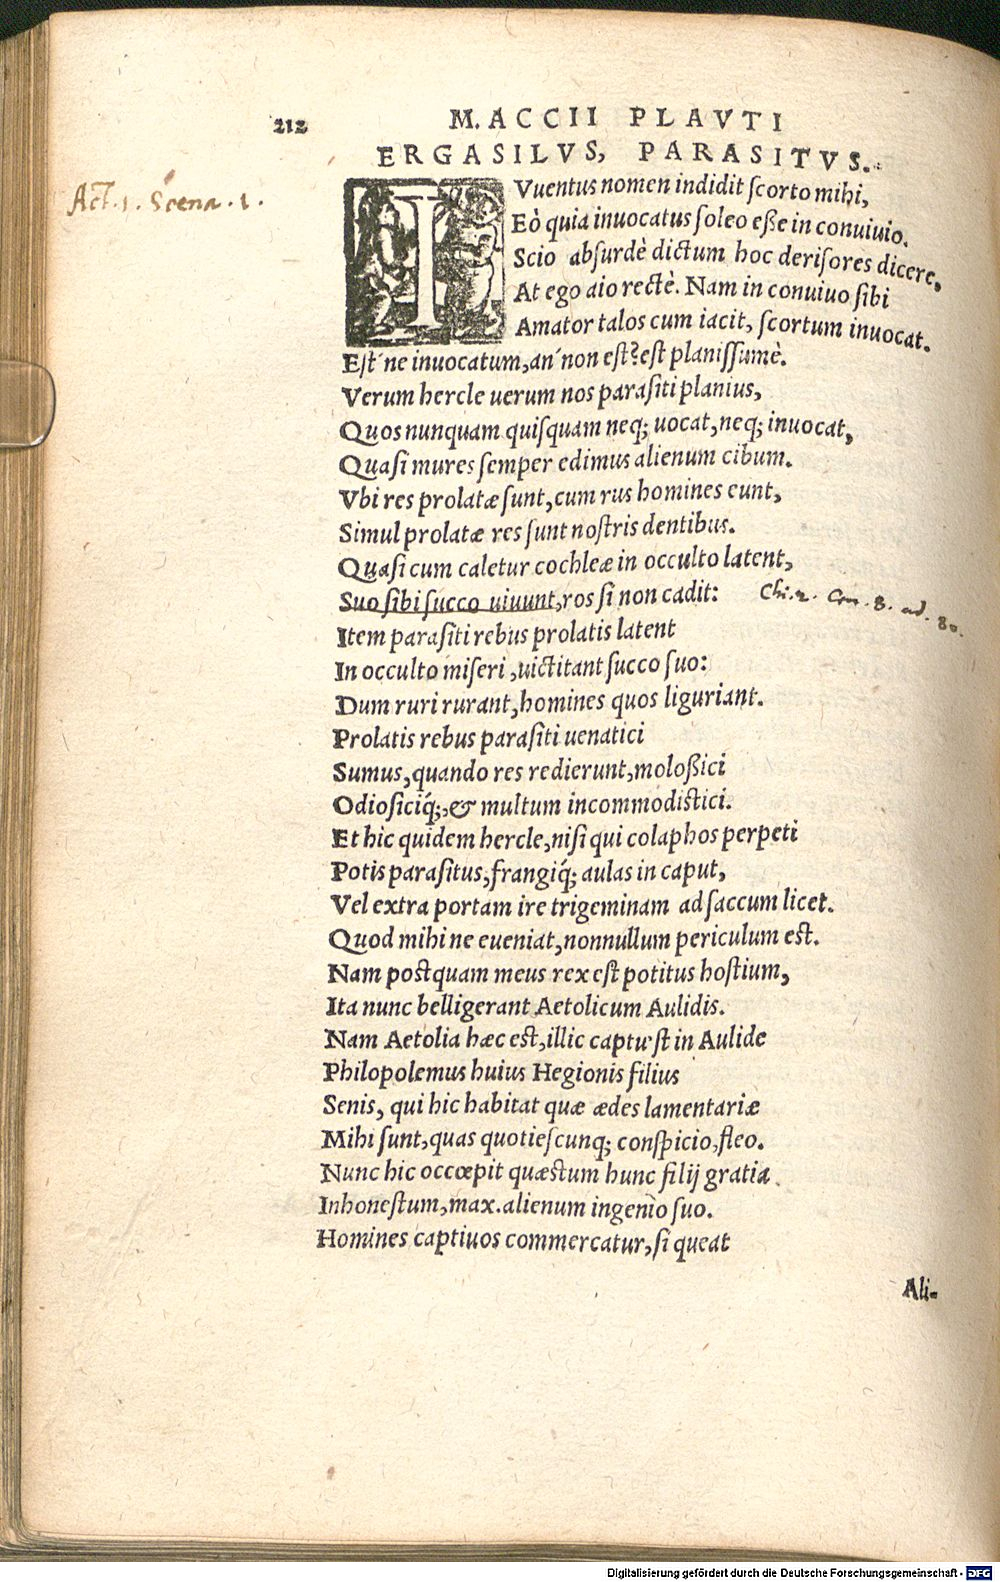 212 M. ACCII PLAVTI
ERGASILVS, PARASITVS.
Act. 1. Scena. 1.
IVuentus nomen indidit scorto mihi,
Eò quia inuocatus soleo eße in conuiuio.
Scio absurdè dictum hoc derisores dicere,
At ego aio rectè. Nam in conuiuo sibi
Amator talos cum iacit, scortum inuocat.
Est´ne inuocatum, an´non est? est planissumè.
Verum hercle uerum nos parasiti planius,
Quos nunquam quisquam neq; uocat, neq; inuocat,
Quasi mures semper edimus alienum cibum.
Vbi res prolatæ sunt, cum rus homines eunt,
Simul prolatæ res sunt nostris dentibus.
Quasi cum caletur cochleæ in occulto latent,
Suo sibi succo uiuunt, ros si non cadit: Chi. 2. Cen. 8. ad. 80.
Item parasiti rebus prolatis latent
In occulto miseri, uictitant succo suo:
Dum ruri rurant, homines quos liguriant.
Prolatis rebus parasiti uenatici
Sumus, quando res redierunt, moloßici
Odiosiciq́;, & multum incommodistici.
Et hic quidem hercle, nisi qui colaphos perpeti
Potis parasitus, frangiq́; aulas in caput,
Vel extra portam ire trigeminam ad saccum licet.
Quod mihi ne eueniat, nonnullum periculum est.
Nam postquam meus rex est potitus hostium,
Ita nunc belligerant Aetolicum Aulidis.
Nam Aetolia hæc est, illic captu'st in Aulide
Philopolemus huius Hegionis filius
Senis, qui hic habitat quæ ædes lamentariæ
Mihi sunt, quas quotiescunq; conspicio, fleo.
Nunc hic occœpit quæstum hunc filij gratia
Inhonestum, max. alienum ingenio suo.
Homines captiuos commercatur, si queat
Ali-
Digitalisierung gefördert durch die Deutsche Forschungsgemeinschaft - DFG